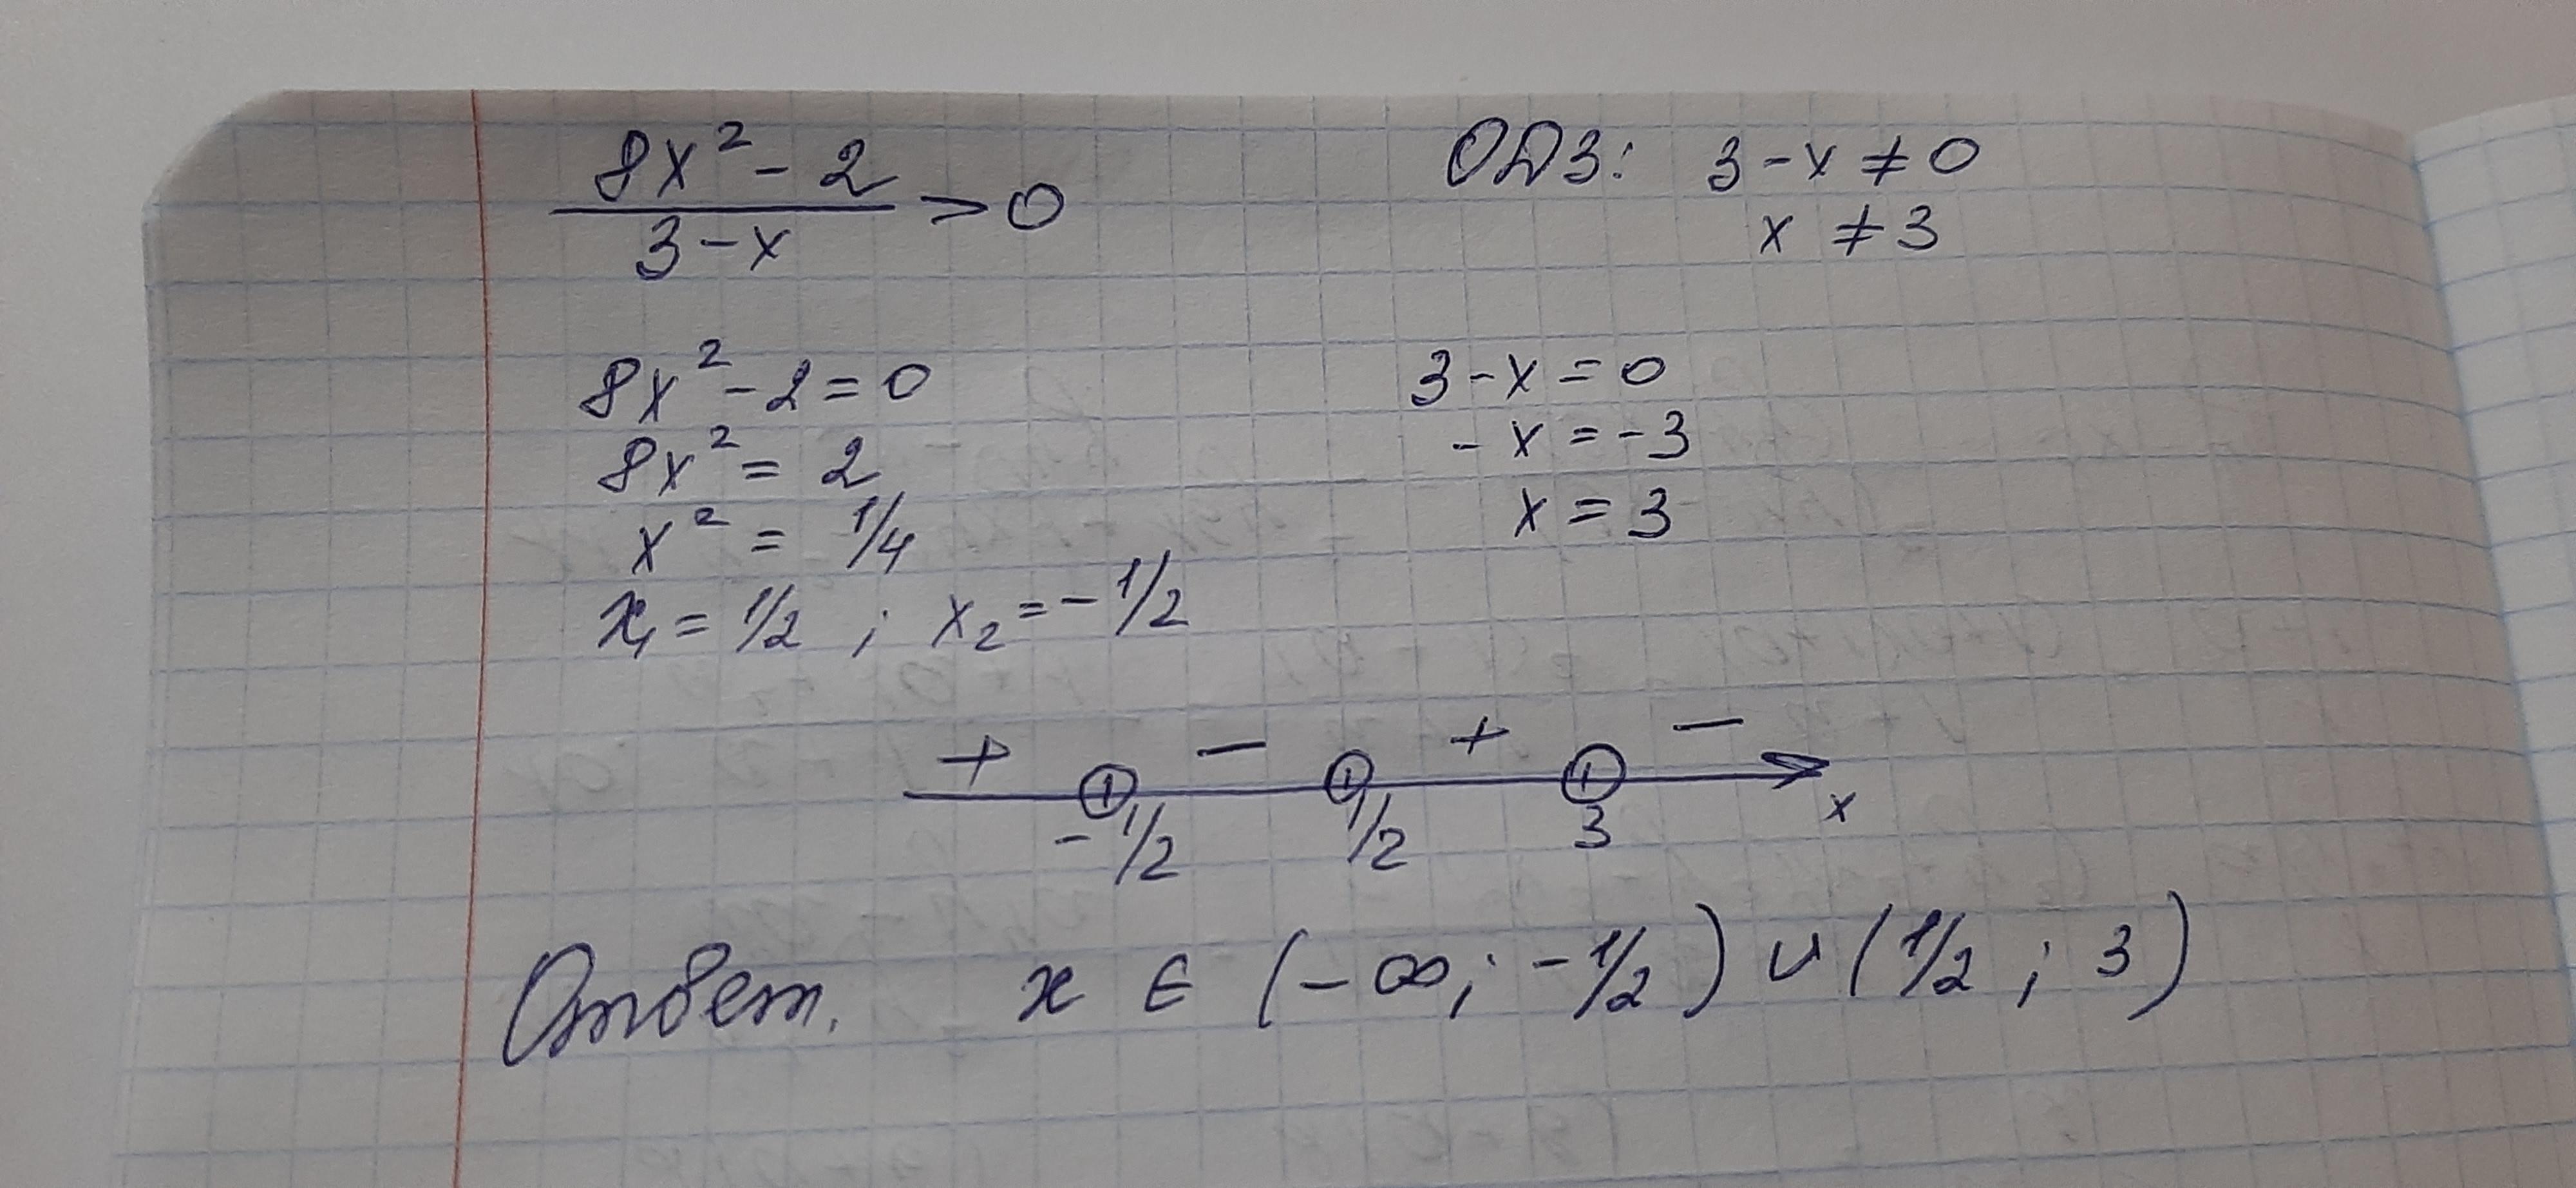 8x² - 2 / 3 - x > 0
ОДЗ: 3 - x ≠ 0
x ≠ 3
8x² - 2 = 0
8x² = 2
x² = 1/4
x₁ = 1/2 ; x₂ = - 1/2
3 - x = 0
- x = -3
x = 3
+ - + -
- 1/2 1/2 3 x
Ответ. x ∈ (-∞; -1/2) ∪ (1/2 ; 3)